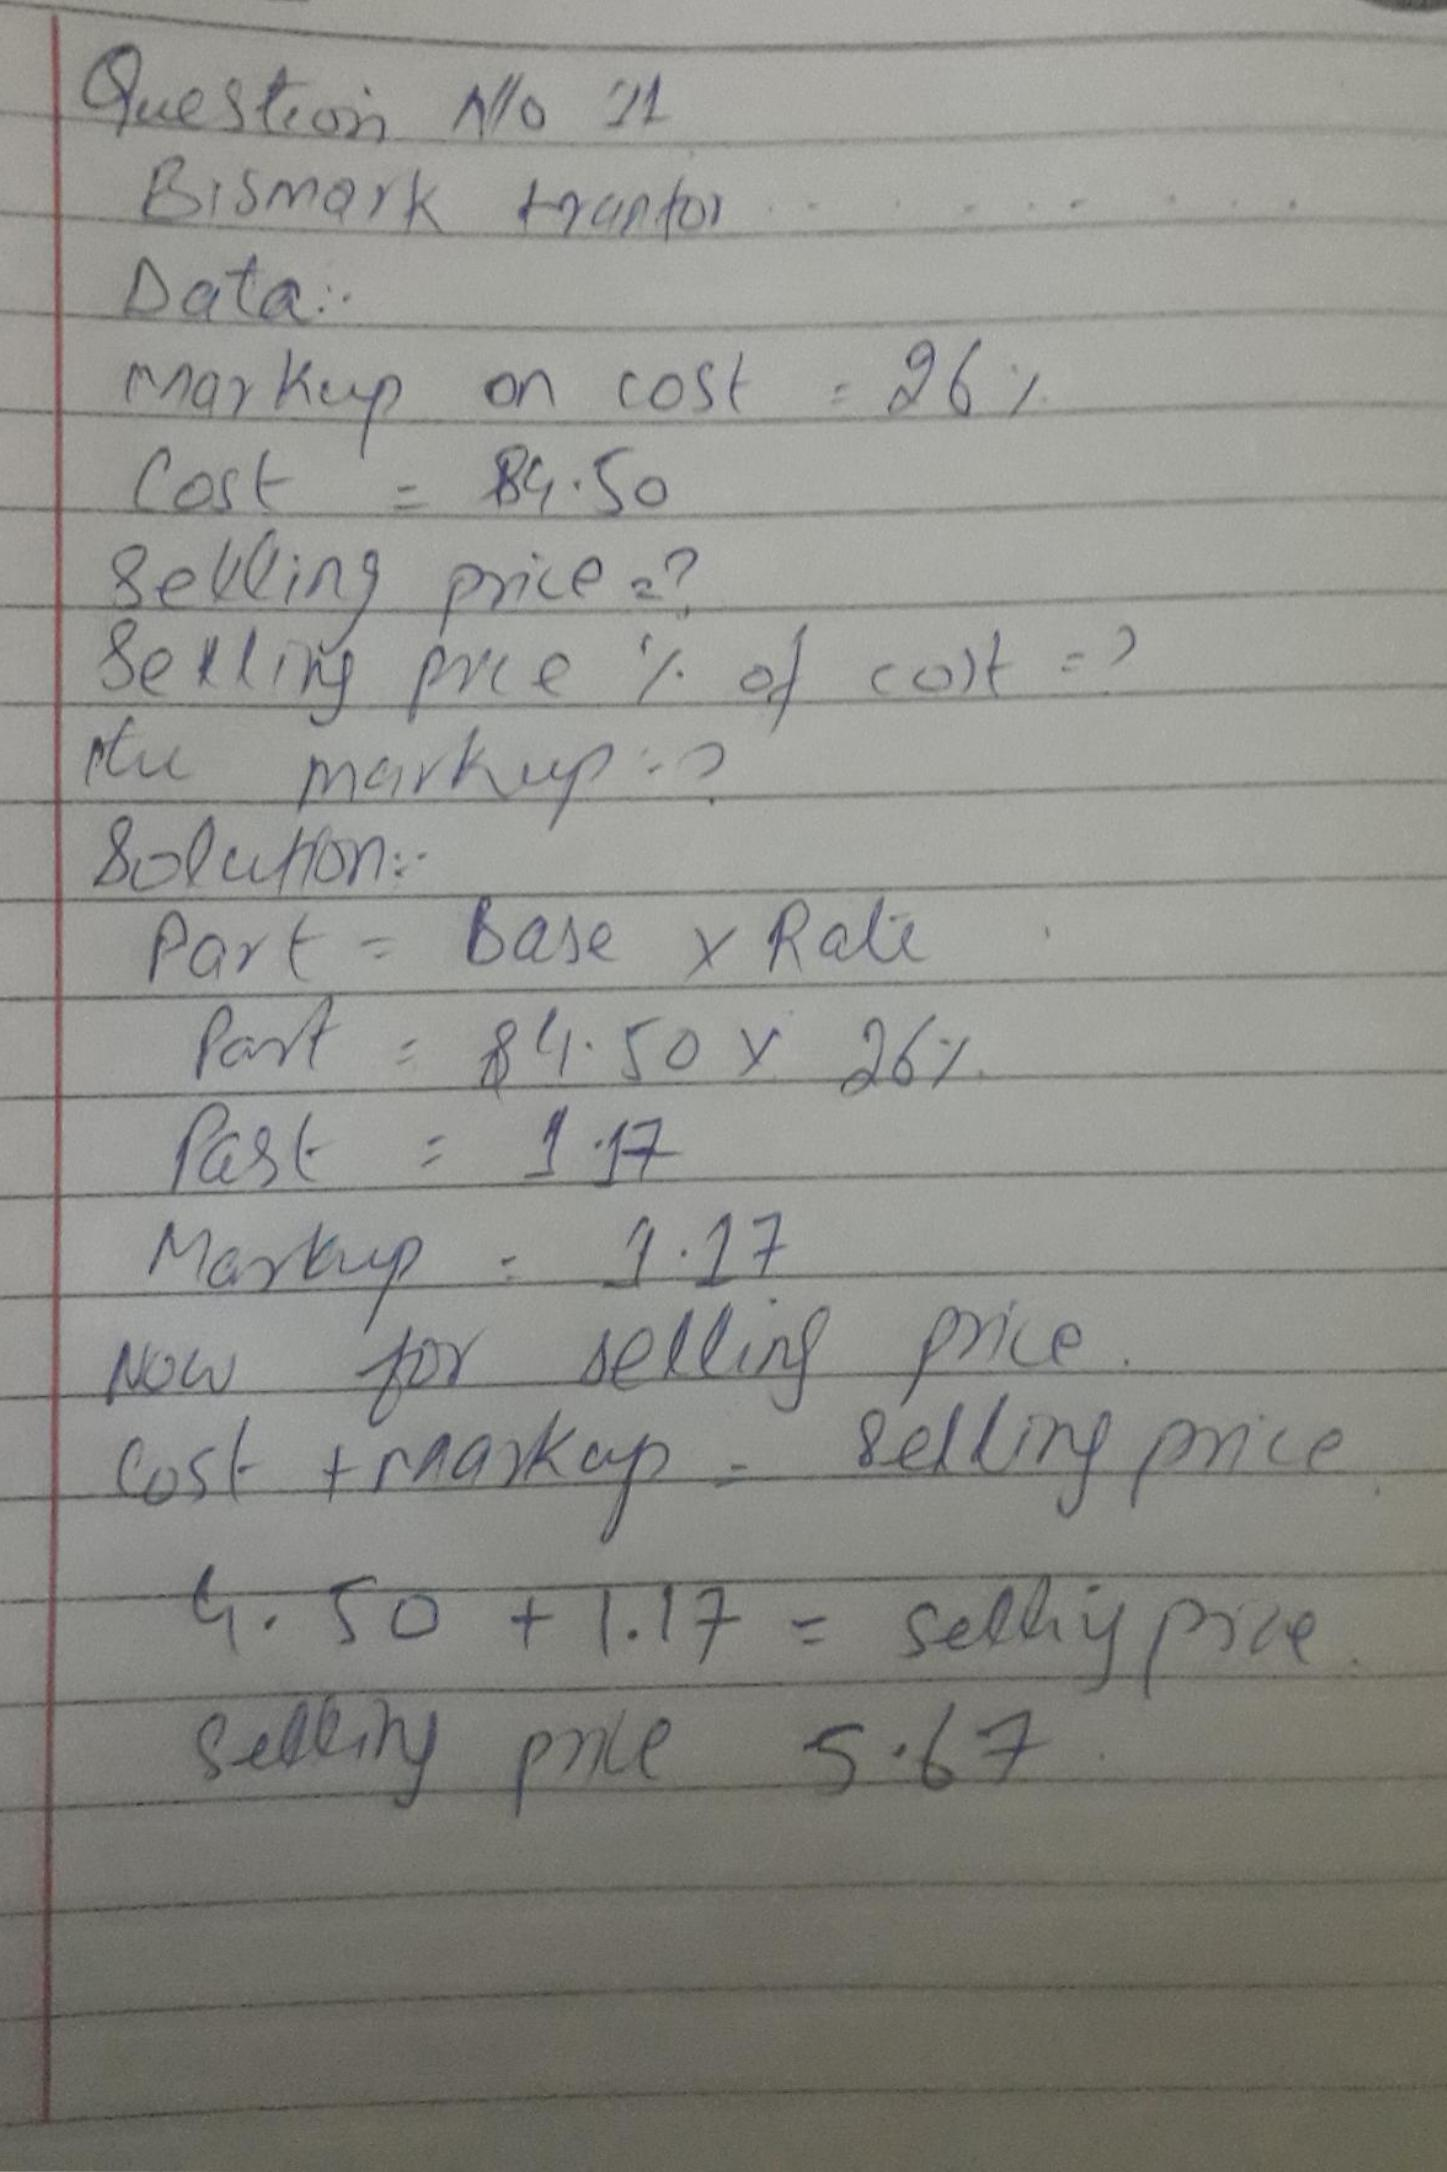 Question No 11
Bismark trantor . . . . . . . .
Data:.
Markup on cost = 26%
Cost = $4.50
Selling price = ?
Selling price % of cost = ?
the markup = ?
Solution:-
Part = Base x Rate
Part = $4.50 x 26%
Part = 1.17
Markup = 1.17
Now for selling price.
Cost + Markup = Selling price.
4.50 + 1.17 = selling price.
Selling price 5.67.